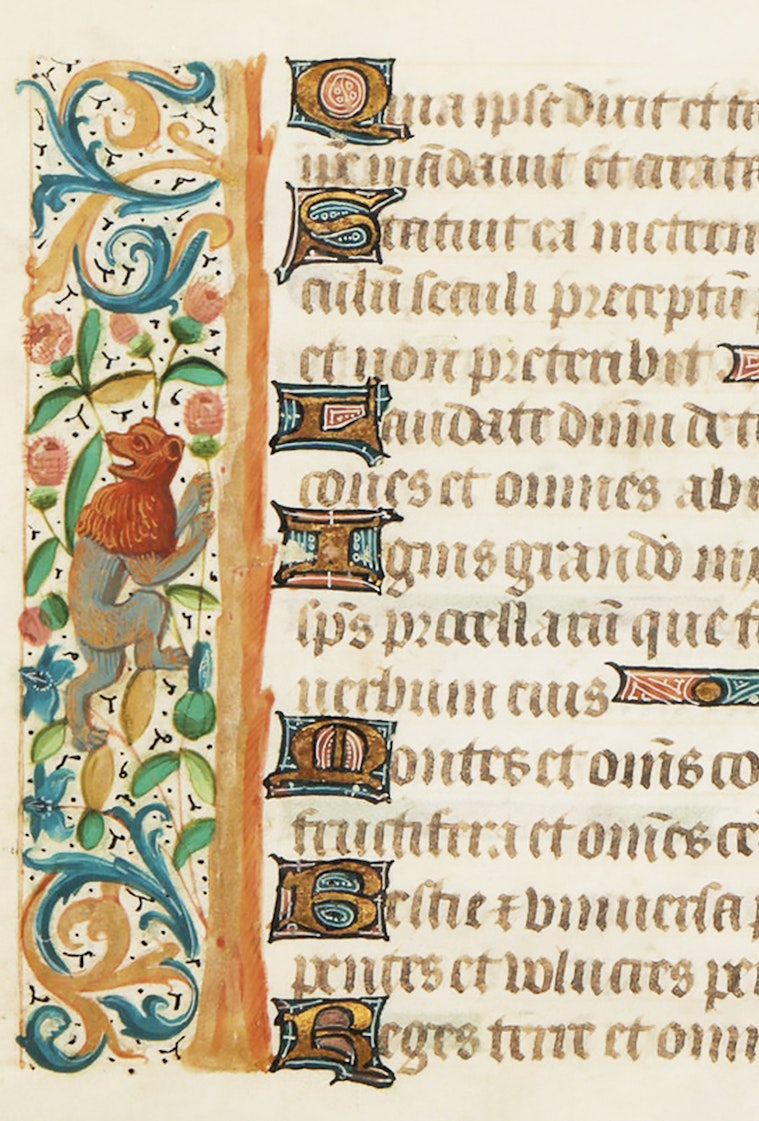 Quia ipse dixit et fa
ip̄e mādauit et creata
Statuit ea in etern
culū seculi preceptū
et non preteribit
Laudate dn̄m de te
cones et omnes aby
Ignis grando nix
sp̄s procellarū que f
uerbum eius
Montes et om̄s co
fructifera et om̄es ce
Bestie ⁊ vniuersa p
pentes et volucres pe
Reges terre et omn